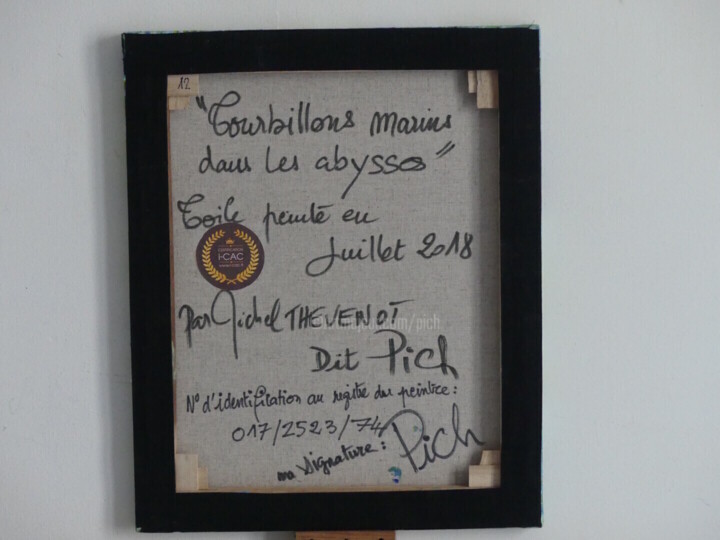 12
"Tourbillons marins
dans les abysses"
Toile peinte en
Juillet 2018
I-CAC
Par Michel THEVENOT
Dit Pich
N° d'identification au registre du peintre:
017/2523/74
ma signature: Pich